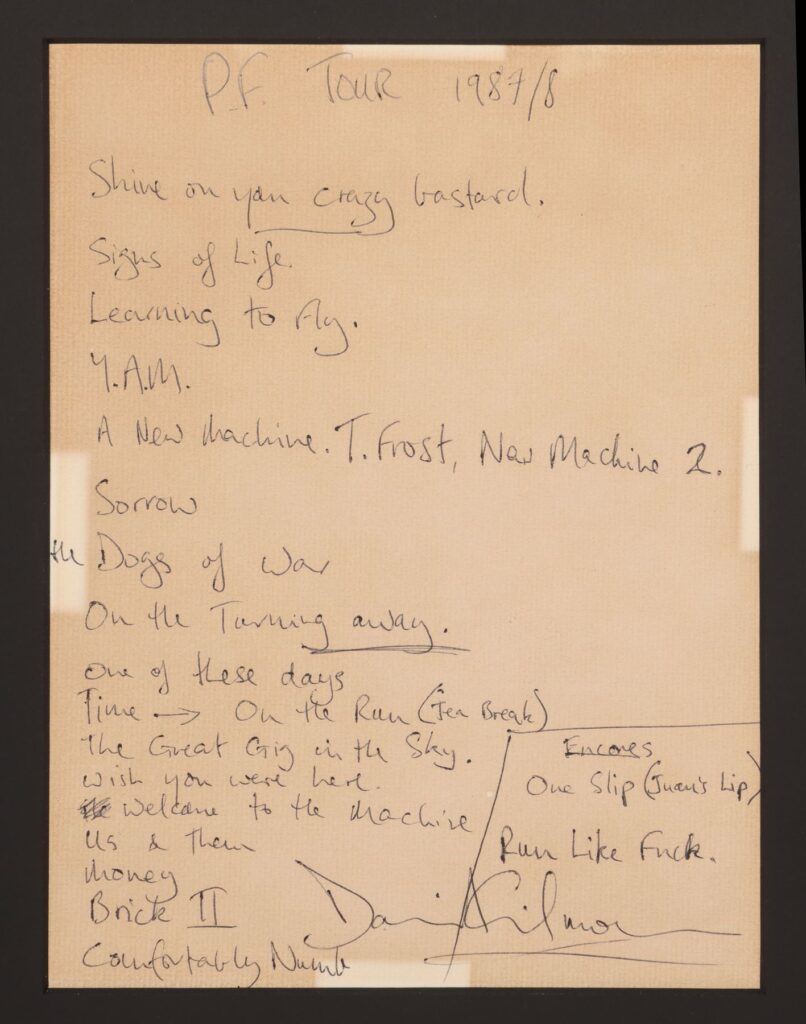 P.F. TOUR 1987/8
Shine on you crazy bastard.
Signs of Life.
Learning to Fly.
Y.A.M.
A New Machine. T. Frost, New Machine 2.
Sorrow
the Dogs of War
On the Turning away.
One of these days
Time → On the Run (Tea Break)
The Great Gig in the Sky.
Wish you were here.
Welcome to the Machine
Us & Them
Money
Brick II
Comfortably Numb
Encores
One Slip (Juan's Lip)
Run Like Fuck.
David Gilmour